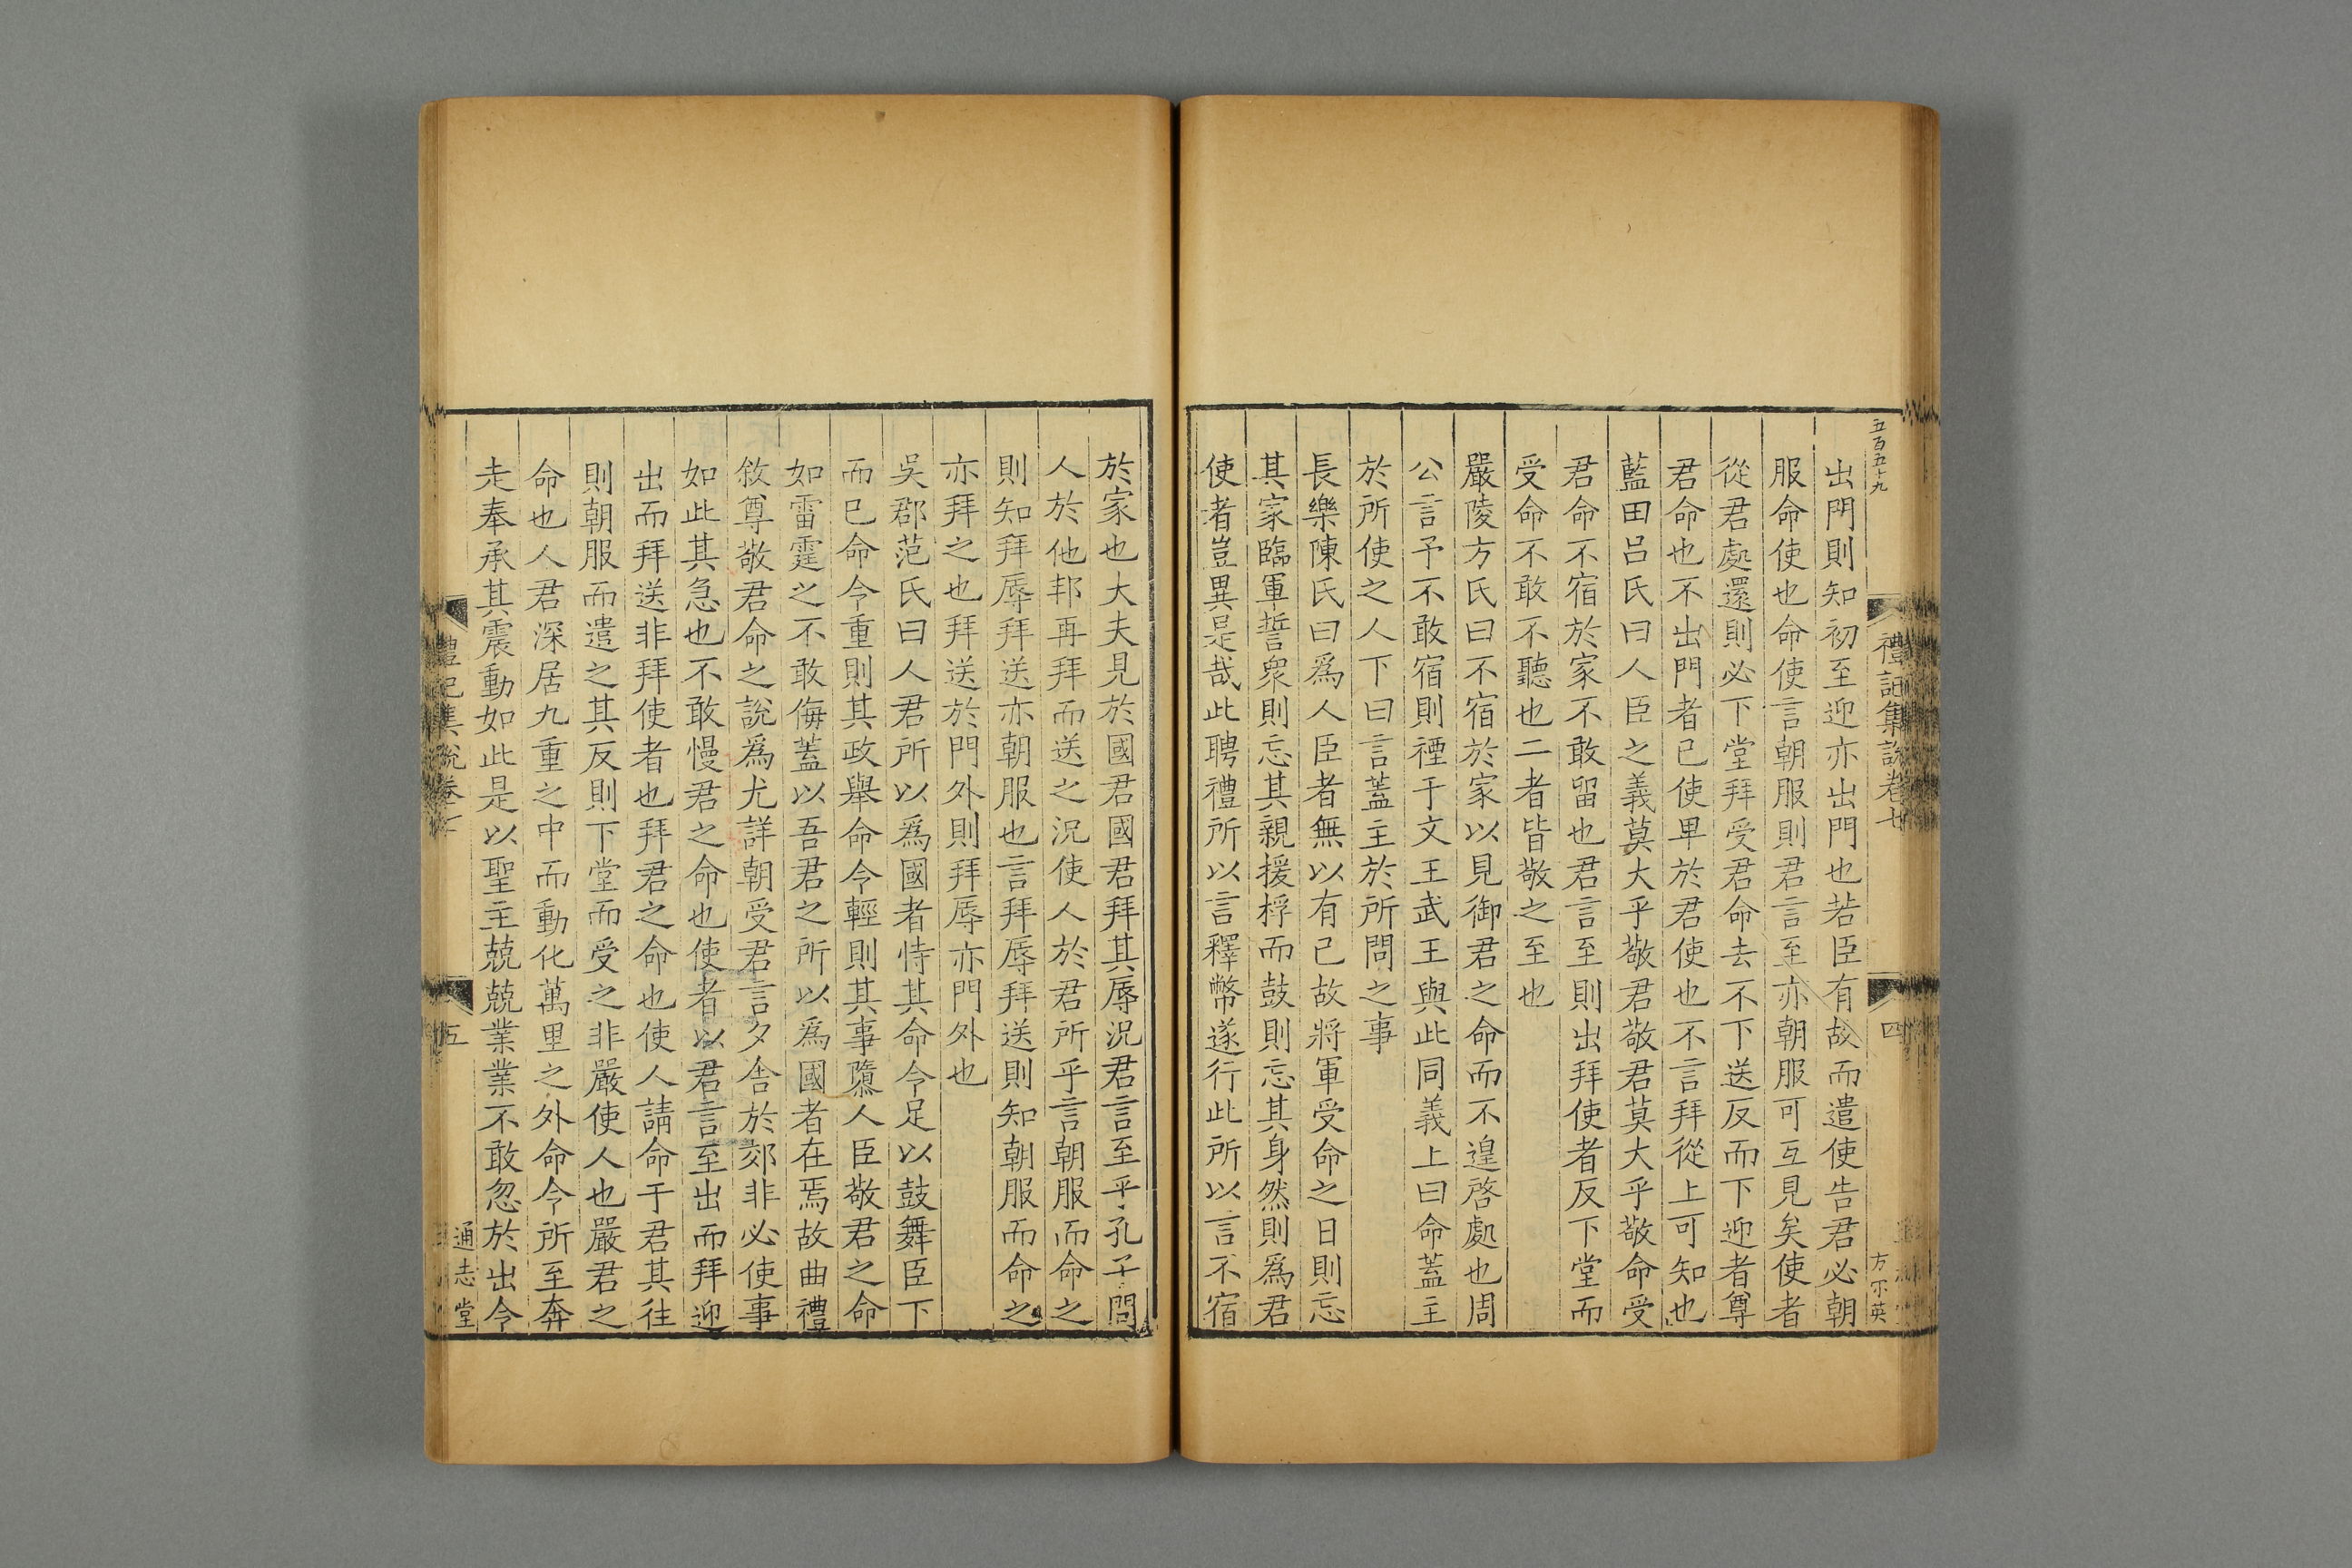 五百五十九
禮記集說卷七
四
方不英
出門則知初至迎亦出門也若臣有故而遣使告君必朝
服命使也命使言朝服則君言至亦朝服可互見矣使者
從君處還則必下堂拜受君命去不下送反而下迎者尊
君命也不出門者已使卑於君使也不言拜從上可知也
藍田呂氏曰人臣之義莫大乎敬君敬君莫大乎敬命受
君命不宿於家不敢留也君言至則出拜使者反下堂而
受命不敢不聽也二者皆敬之至也
嚴陵方氏曰不宿於家以見御君之命而不遑啓處也周
公言予不敢宿則禋于文王武王與此同義上曰命蓋主
於所使之人下曰言蓋主於所問之事
長樂陳氏曰爲人臣者無以有已故將軍受命之日則忘
其家臨軍誓衆則忘其親援桴而鼓則忘其身然則爲君
使者豈異是哉此聘禮所以言釋幣遂行此所以言不宿
於家也大夫見於國君國君拜其辱況君言至乎孔子問
人於他邦再拜而送之況使人於君所乎言朝服而命之
則知拜辱拜送亦朝服也言拜辱拜送則知朝服而命之
亦拜之也拜送於門外則拜辱亦門外也
吳郡范氏曰人君所以爲國者恃其命令足以鼓舞臣下
而已命令重則其政舉命令輕則其事隳人臣敬君之命
如雷霆之不敢侮蓋以吾君之所以爲國者在焉故曲禮
敘尊敬君命之說爲尤詳朝受君言夕舍於郊非必使事
如此其急也不敢慢君之命也使者以君言至出而拜迎
出而拜送非拜使者也拜君之命也使人請命于君其往
則朝服而遣之其反則下堂而受之非嚴使人也嚴君之
命也人君深居九重之中而動化萬里之外命令所至奔
走奉承其震動如此是以聖主兢兢業業不敢忽於出令
禮記集說卷七
五
通志堂